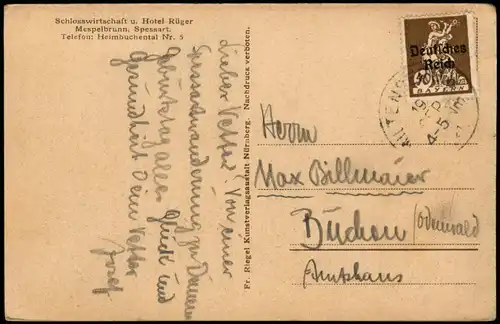 Schlosswirtschaft u. Hotel Rüger
Mespelbrunn, Spessart.
Telefon: Heimbuchental Nr. 5
Lieber Vetter! Von einer
Spessartwanderung zu Deinem
Geburtstag alles Glück und
Gesundheit Dein Vetter
Josef
Fr. Riegel Kunstverlagsanstalt Nürnberg. Nachdruck verboten.
Deutsches
Reich
40
BAYERN
MILTENB
19
4-5
Herrn
Max Billmaier
Buchen /Odenwald
Amtshaus